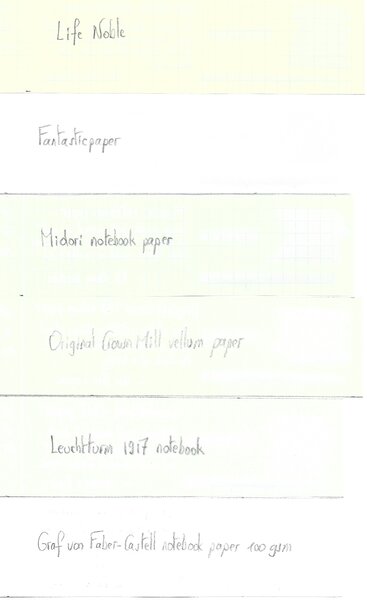 Life Noble
Fantasticpaper
Midori notebook paper
Original Crown Mill vellum paper
Leuchtturm 1917 notebook
Graf von Faber-Castell notebook paper 100 gsm